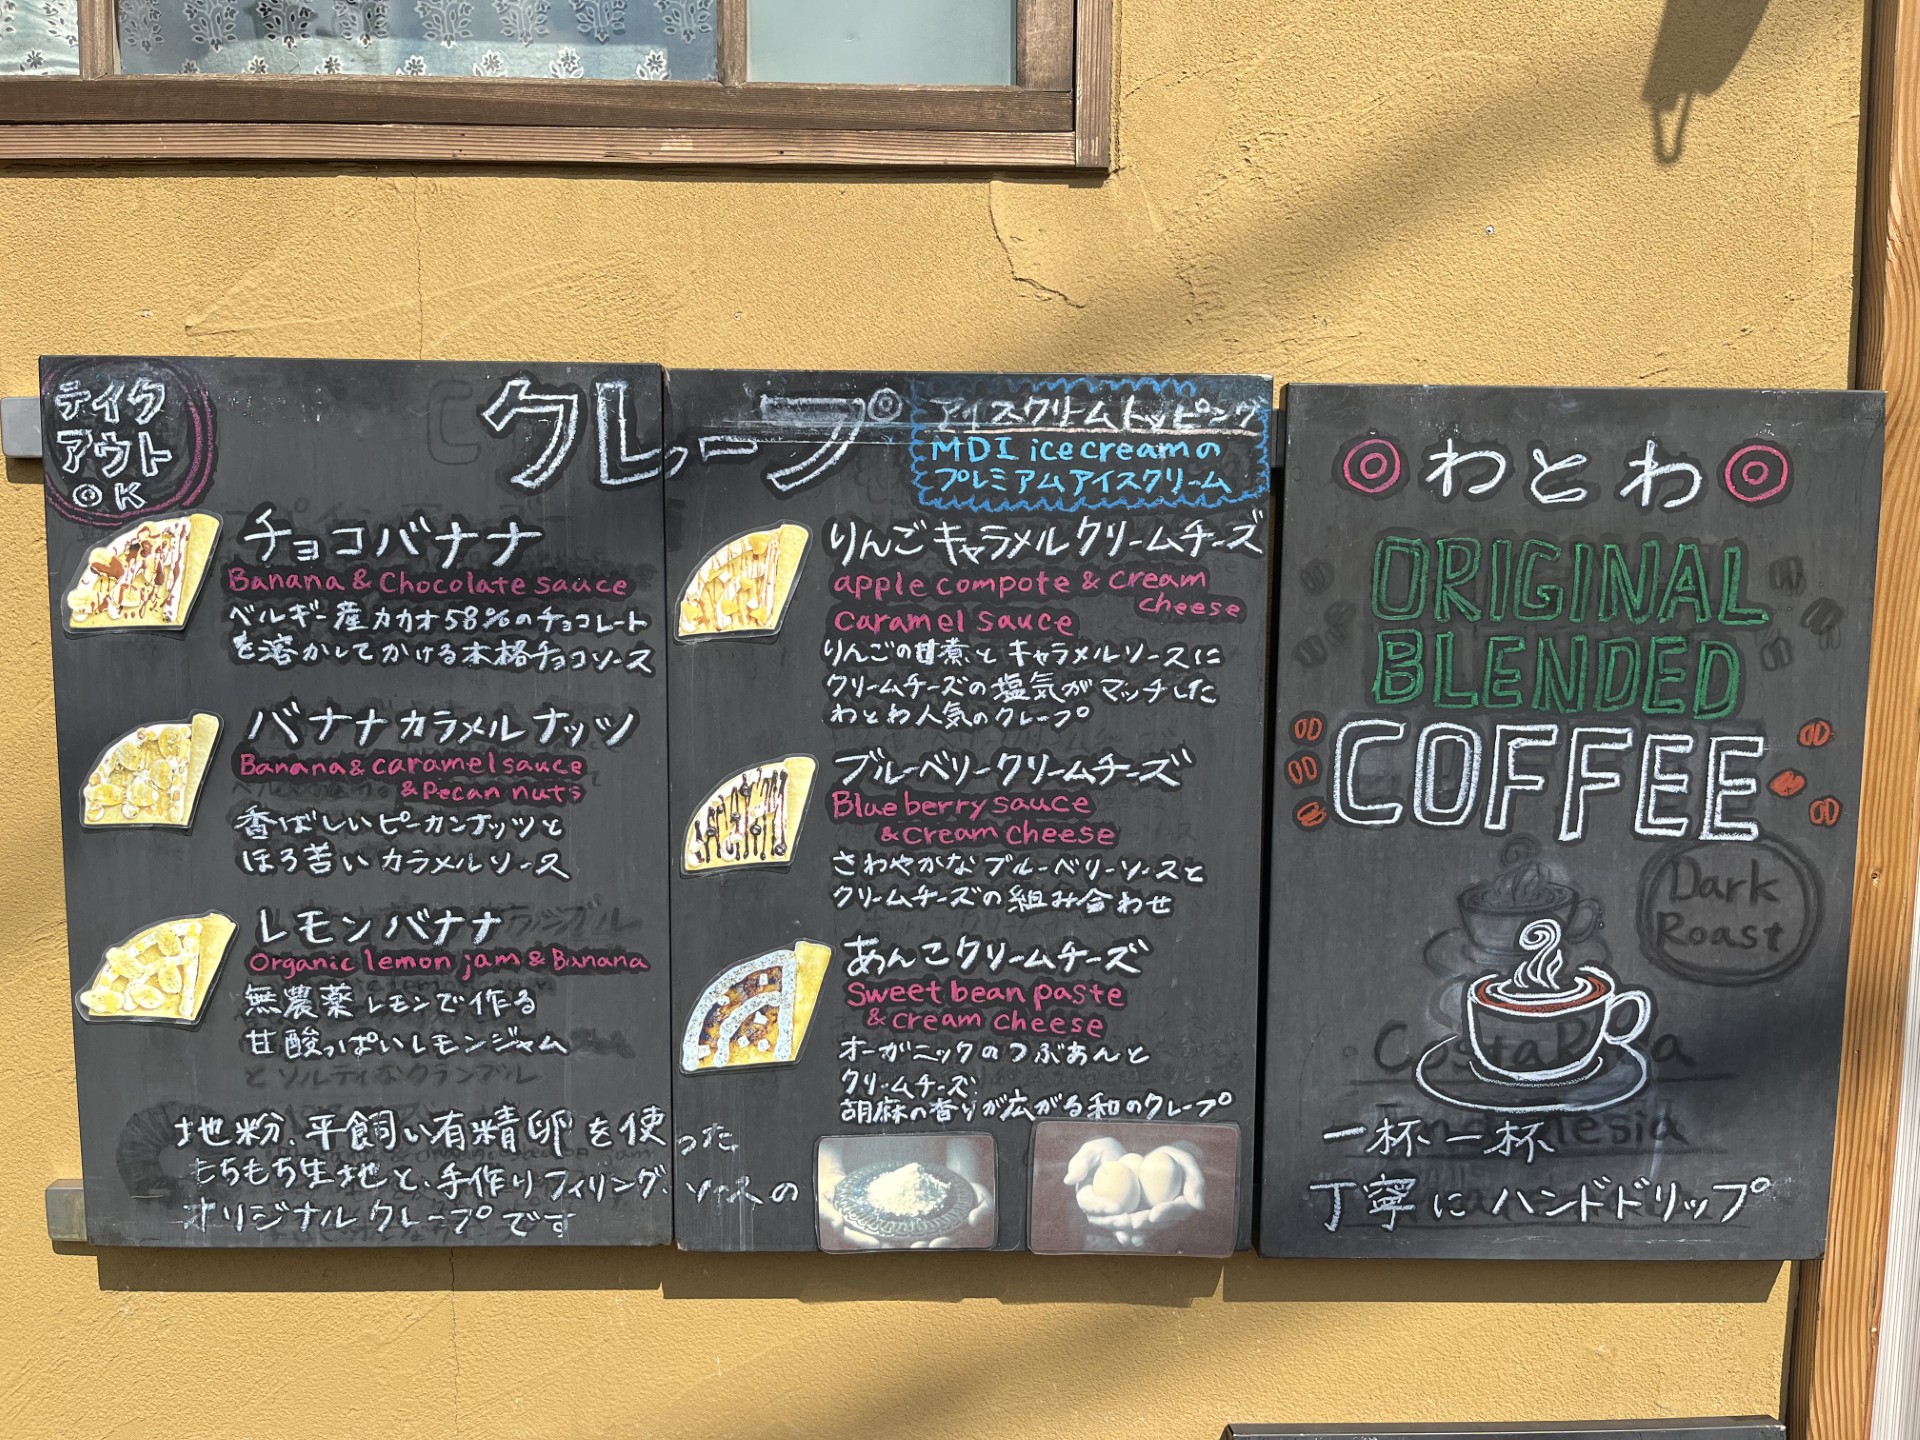 テイク
アウト
OK
クレープ
アイスクリームトッピング
MDI ice creamの
プレミアムアイスクリーム
チョコバナナ
Banana & Chocolate sauce
ベルギー産カカオ58%のチョコレート
を溶かしてかける本格チョコソース
バナナカラメルナッツ
Banana & caramel sauce
& Pecan nuts
香ばしいピーカンナッツと
ほろ苦いカラメルソース
レモンバナナ
Organic lemon jam & Banana
無農薬レモンで作る
甘酸っぱいレモンジャム
とソルティなクランブル
りんごキャラメルクリームチーズ
apple compote & cream
cheese
caramel sauce
りんごの甘煮とキャラメルソースに
クリームチーズの塩気がマッチした
わとわ人気のクレープ
ブルーベリークリームチーズ
Blueberry sauce
& cream cheese
さわやかなブルーベリーソースと
クリームチーズの組み合わせ
あんこクリームチーズ
Sweet bean paste
& cream cheese
オーガニックのつぶあんと
クリームチーズ
胡麻の香りが広がる和のクレープ
地粉、平飼い有精卵を使った
もちもち生地と、手作りフィリング、ソースの
オリジナルクレープです
わとわ
ORIGINAL
BLENDED
COFFEE
Dark
Roast
Costa Rica
一杯一杯
丁寧にハンドドリップ